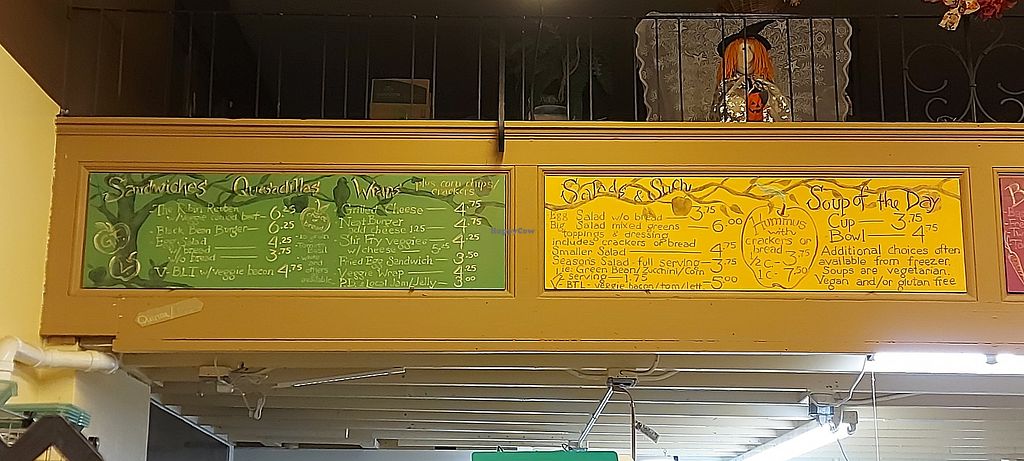 Sandwiches Quesadillas Wraps Plus corn chips/
crackers
w/
6.25
Black Bean Burger 6.25
Egg Salad 4.25
w/o bread 3.75
V-BLT w/veggie bacon 4.75
Grilled Cheese 4.75
Neat Burger 4.75
add cheese 1.25
Stir Fry Veggies 4.25
w/cheese 5.25
Fried Egg Sandwich 3.50
Veggie Wrap 4.25
Local Jam/Jelly 3.00
Quinoa
Salads & Such
Egg Salad w/o bread 3.75
Big Salad mixed greens 6.00
toppings & dressing
includes crackers or bread
Smaller Salad 4.75
Seasons Salad full serving 3.75
ie: Green Bean/Zucchini/Corn
1/2 serving 1.75
V-BTL-veggie bacon/tom/lett 5.00
Hummus
with
crackers or
bread
1/2 C-
1 C- 7.50
Soup of the Day
Cup 3.75
Bowl 4.75
Additional choices often
available from freezer.
Soups are vegetarian.
Vegan and/or glutan free
HappyCow